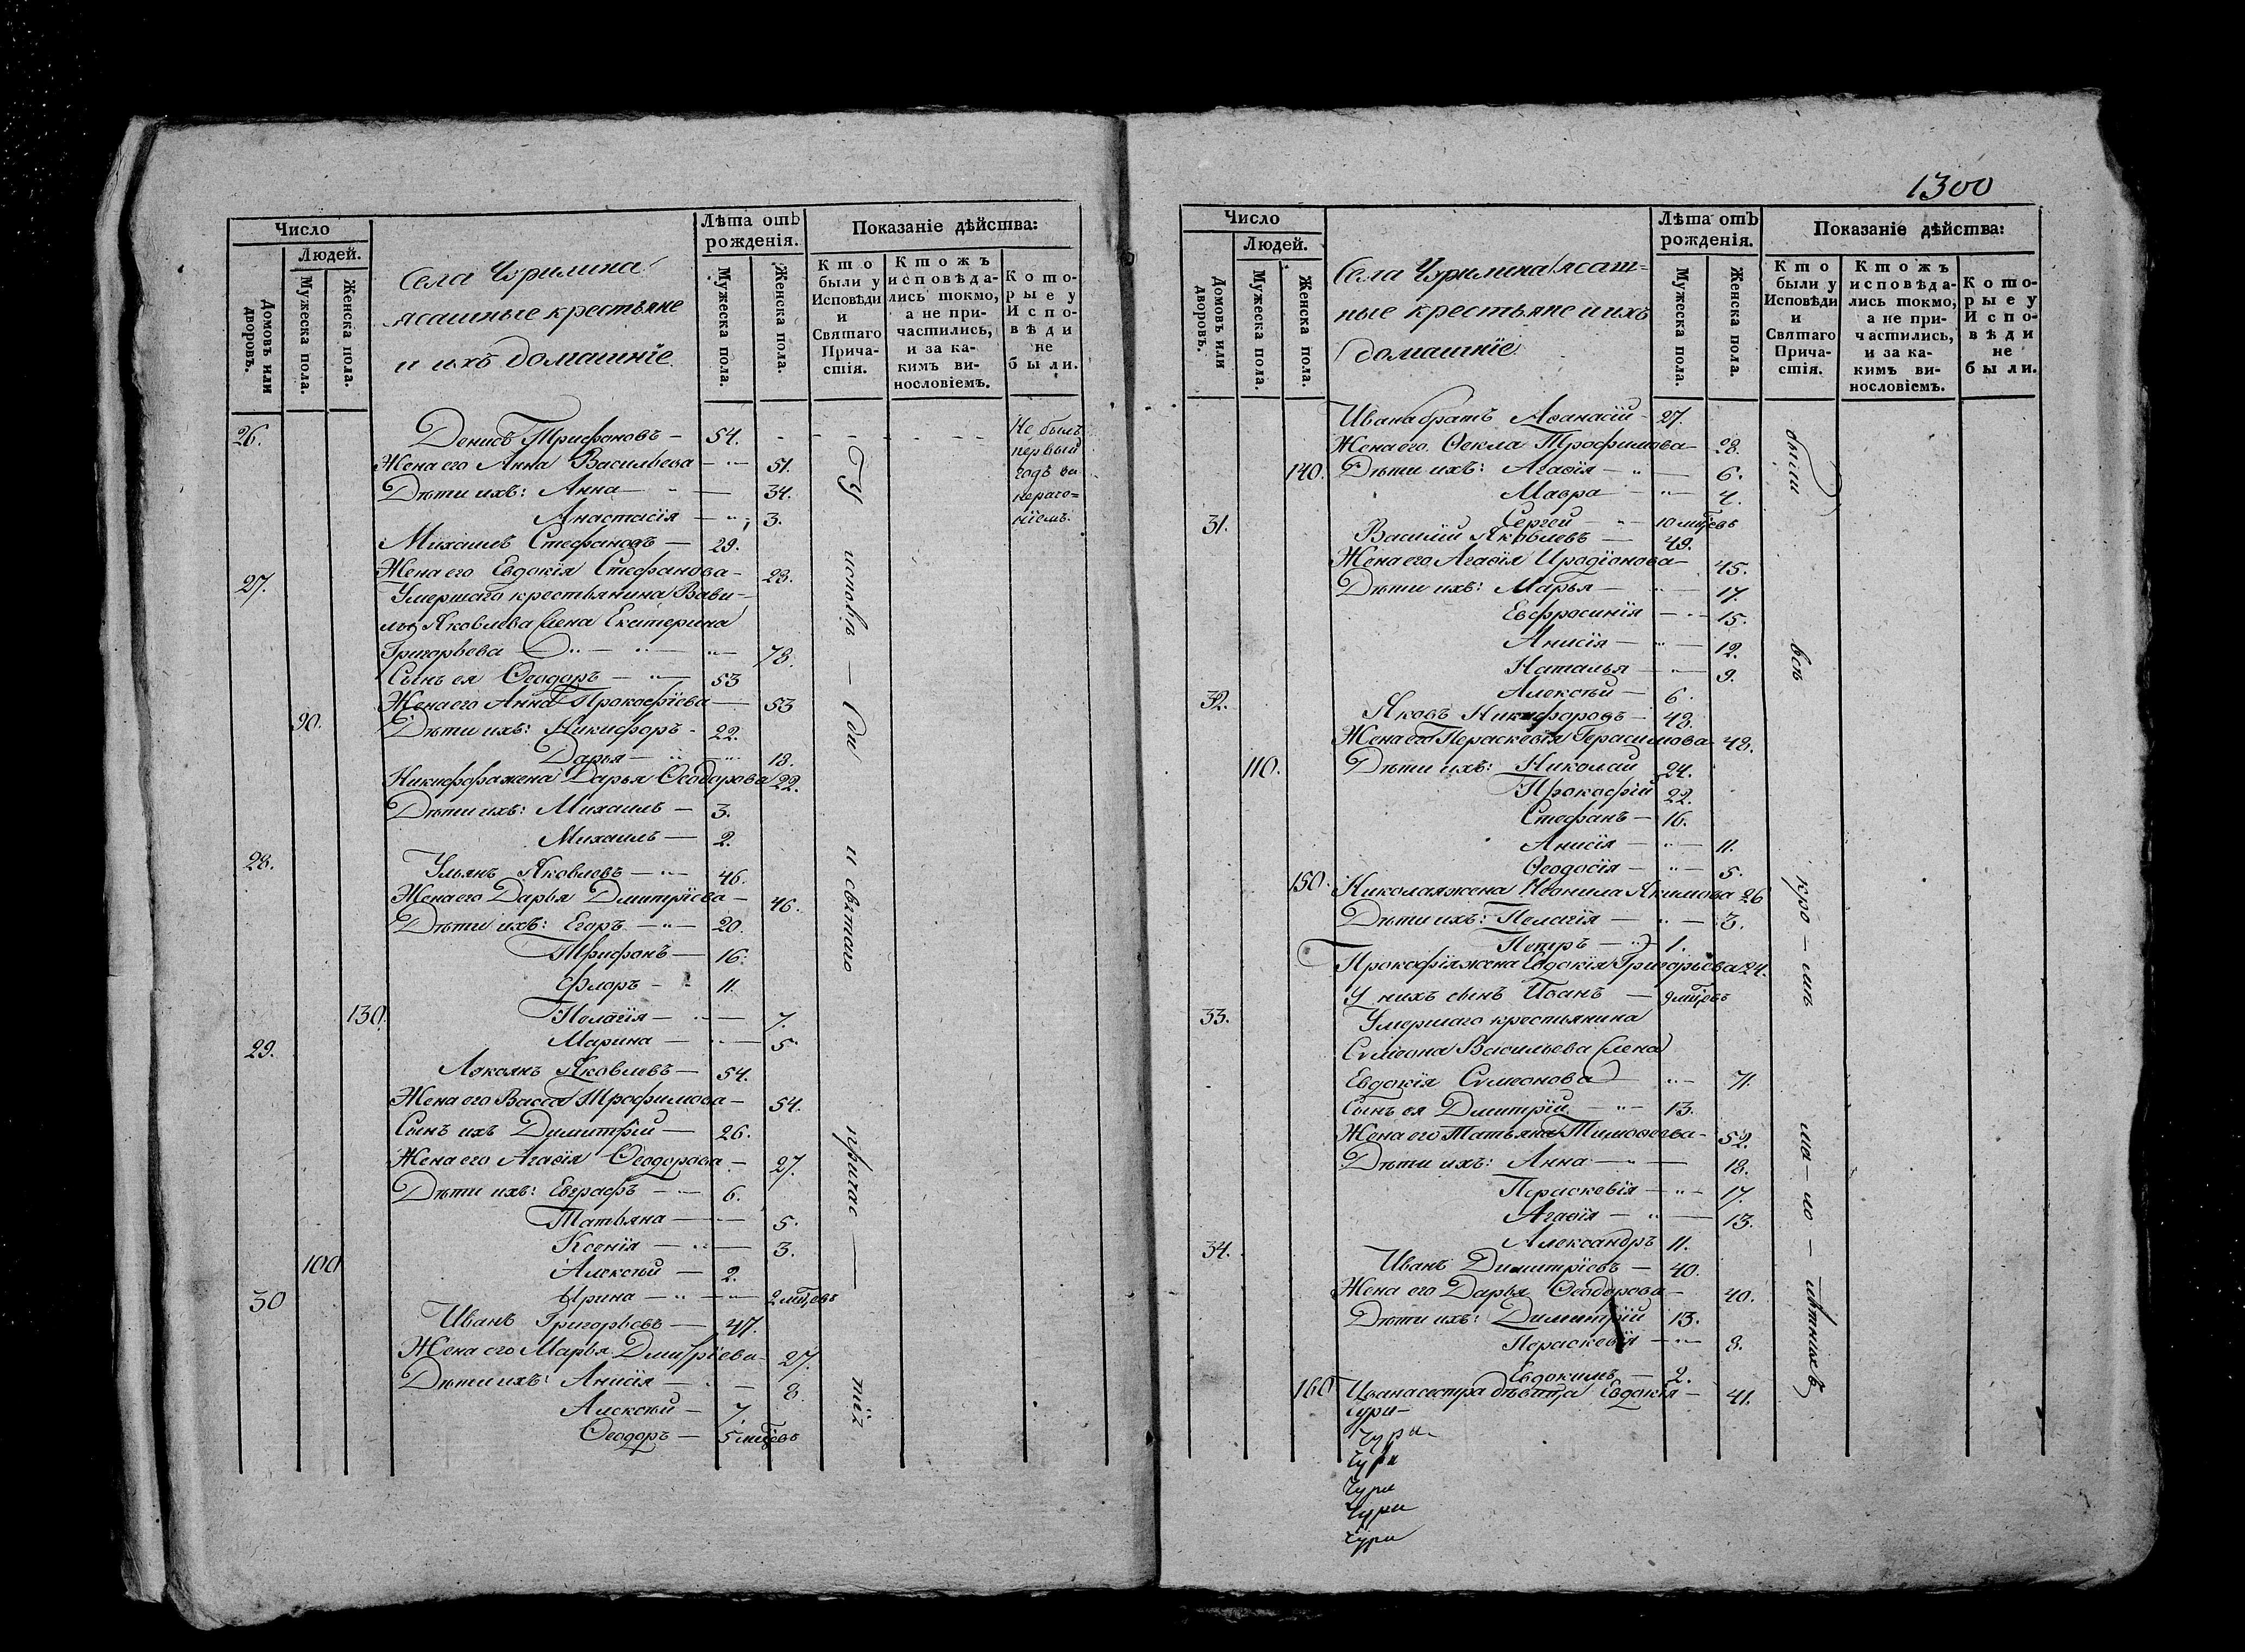 Число
Людей.
Домовъ или дворовъ.
Мужеска пола.
Женска пола.
Села Чурилина
ясашные крестьяне
и ихъ домашнїе
Лѣта отъ рожденїя.
Мужеска пола.
Женска пола.
Показанїе дѣйства:
Кто были у Исповѣди и Святаго Причастїя.
Ктожъ исповѣдались токмо, а не причастились, и за какимъ винословїемъ.
Которые у Исповѣди не были.
26. Денисъ Трифоновъ — 54. Не былъ
первый
годъ за
нїемъ.
Жена его Анна Васильева — 51.
Дѣти ихъ: Анна — 34.
Анастасїя — 3.
Михаилъ Стефановъ — 29.
Жена его Евдокїя Стефанова — 28.
27. Умершаго крестьянина Вави-
лы Яковлева жена Екатерина
Григорьева — 78.
Сынъ ея Ѳеодоръ — 53
Жена его Анна Прокофїева — 53
90. Дѣти ихъ: Никифоръ - 22.
Дарья — 18.
Никифора жена Дарья Ѳеодорова 22.
Дѣти ихъ: Михаилъ — 3.
Михаилъ — 2.
28. Ульянъ Яковлевъ — 46.
Жена его Дарья Дмитрїева — 46.
Дѣти ихъ: Егоръ — 20.
Трифонъ — 16.
Флоръ — 11.
130. Пелагїя — 7.
Марина — 5.
29. Лукїянъ Яковлевъ — 54.
Жена его Васса Трофимова — 54.
Сынъ ихъ Димитрїй — 26.
Жена его Агафїя Ѳеодорова — 27.
Дѣти ихъ: Евграфъ — 6.
Татьяна — 5.
Ксенїя — 3.
100 Алексѣй — 2.
Ирина — 2 мцовъ
30 Иванъ Григорьевъ — 47.
Жена его Марья Дмитрїева — 27.
Дѣти ихъ: Анисїя — 8
Алексѣй — 7.
Ѳеодоръ — 5 мцовъ
У исповѣ — ди и святаго причас — тїя
1300
Число
Людей.
Домовъ или дворовъ.
Мужеска пола.
Женска пола.
Села Чурилина ясаш=
ные крестьяне и ихъ
домашнїе
Лѣта отъ рожденїя.
Мужеска пола.
Женска пола.
Показанїе дѣйства:
Кто были у Исповѣди и Святаго Причастїя.
Ктожъ исповѣдались токмо, а не причастились, и за какимъ винословїемъ.
Которые у Исповѣди не были.
Ивана братъ Аѳанасїй — 27.
Жена его Ѳекла Трофимова — 28.
140. Дѣти ихъ: Агафїя — 6.
Мавра — 4.
Сергей — 10 мцовъ
31. Василїй Яковлевъ — 49.
Жена его Агафїя Иродїонова — 45.
Дѣти ихъ: Марья — 17.
Евфросинїя — 15.
Анисїя — 12.
Наталья — 9.
Алексѣй — 6.
32. Яковъ Никифоровъ — 48.
Жена его Параскевїя Герасимова 48.
110. Дѣти ихъ: Николай 24.
Прокофїй 22.
Стефанъ — 16.
Анисїя — 11.
Ѳеодосїя — 5.
150. Николая жена Неонила Якимова 26
Дѣти ихъ: Пелагїя — 3.
Петръ — 1.
Прокофїя жена Евдокїя Григорьева 24.
У нихъ сынъ Иванъ — 9 мцовъ
33. Умершаго крестьянина
Сѵмеона Васильева жена
Евдокїя Сѵмеонова — 71.
Сынъ ея Дмитрїй — 13.
Жена его Татьяна Тимоѳеева — 52.
Дѣти ихъ: Анна — 18.
Параскевїя — 17.
Агафїя — 13.
Александръ 11.
34. Иванъ Димитрїевъ — 40.
Жена его Дарья Ѳеодорова — 40.
Дѣти ихъ: Димитрїй 13.
Параскевїя — 8.
Евдокимъ — 2.
160 Ивана сестра дѣвица Евдокїя — 41.
Чури-
Чури-
Чури
Чури
Чури
Чури
были всѣ кро — мѣ ма — ло — лѣтныхъ